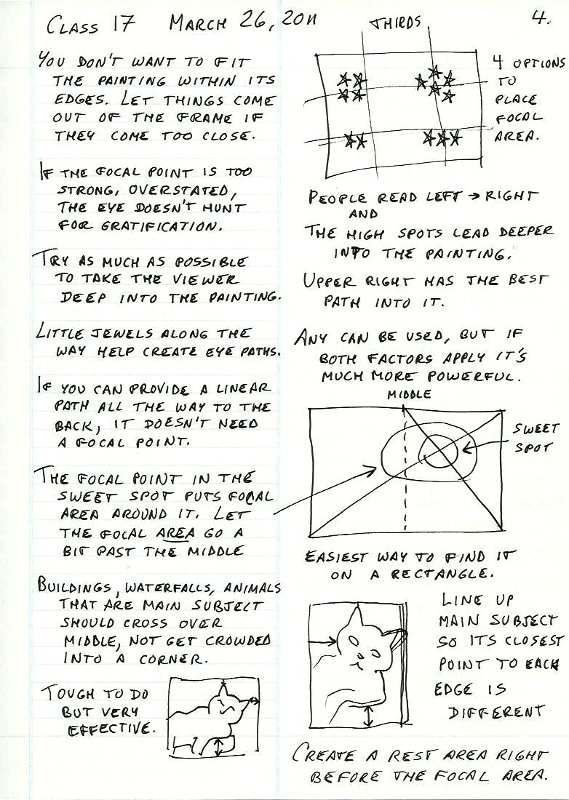 Class 17 March 26, 2011
4.
You don't want to fit
the painting within its
edges. Let things come
out of the frame if
they come too close.
If the focal point is too
strong, overstated,
the eye doesn't hunt
for gratification.
Try as much as possible
to take the viewer
deep into the painting.
Little jewels along the
way help create eye paths.
If you can provide a linear
path all the way to the
back, it doesn't need
a focal point.
The focal point in the
sweet spot puts focal
area around it. Let
the focal area go a
bit past the middle
Buildings, waterfalls, animals
that are main subject
should cross over
middle, not get crowded
into a corner.
Tough to do
but very
effective.
Thirds
4 options
to
place
focal
area.
People read left → right
and
the high spots lead deeper
into the painting.
Upper right has the best
path into it.
Any can be used, but if
both factors apply it's
much more powerful.
Middle
Sweet
spot
Easiest way to find it
on a rectangle.
Line up
main subject
so its closest
point to each
edge is
different
Create a rest area right
before the focal area.